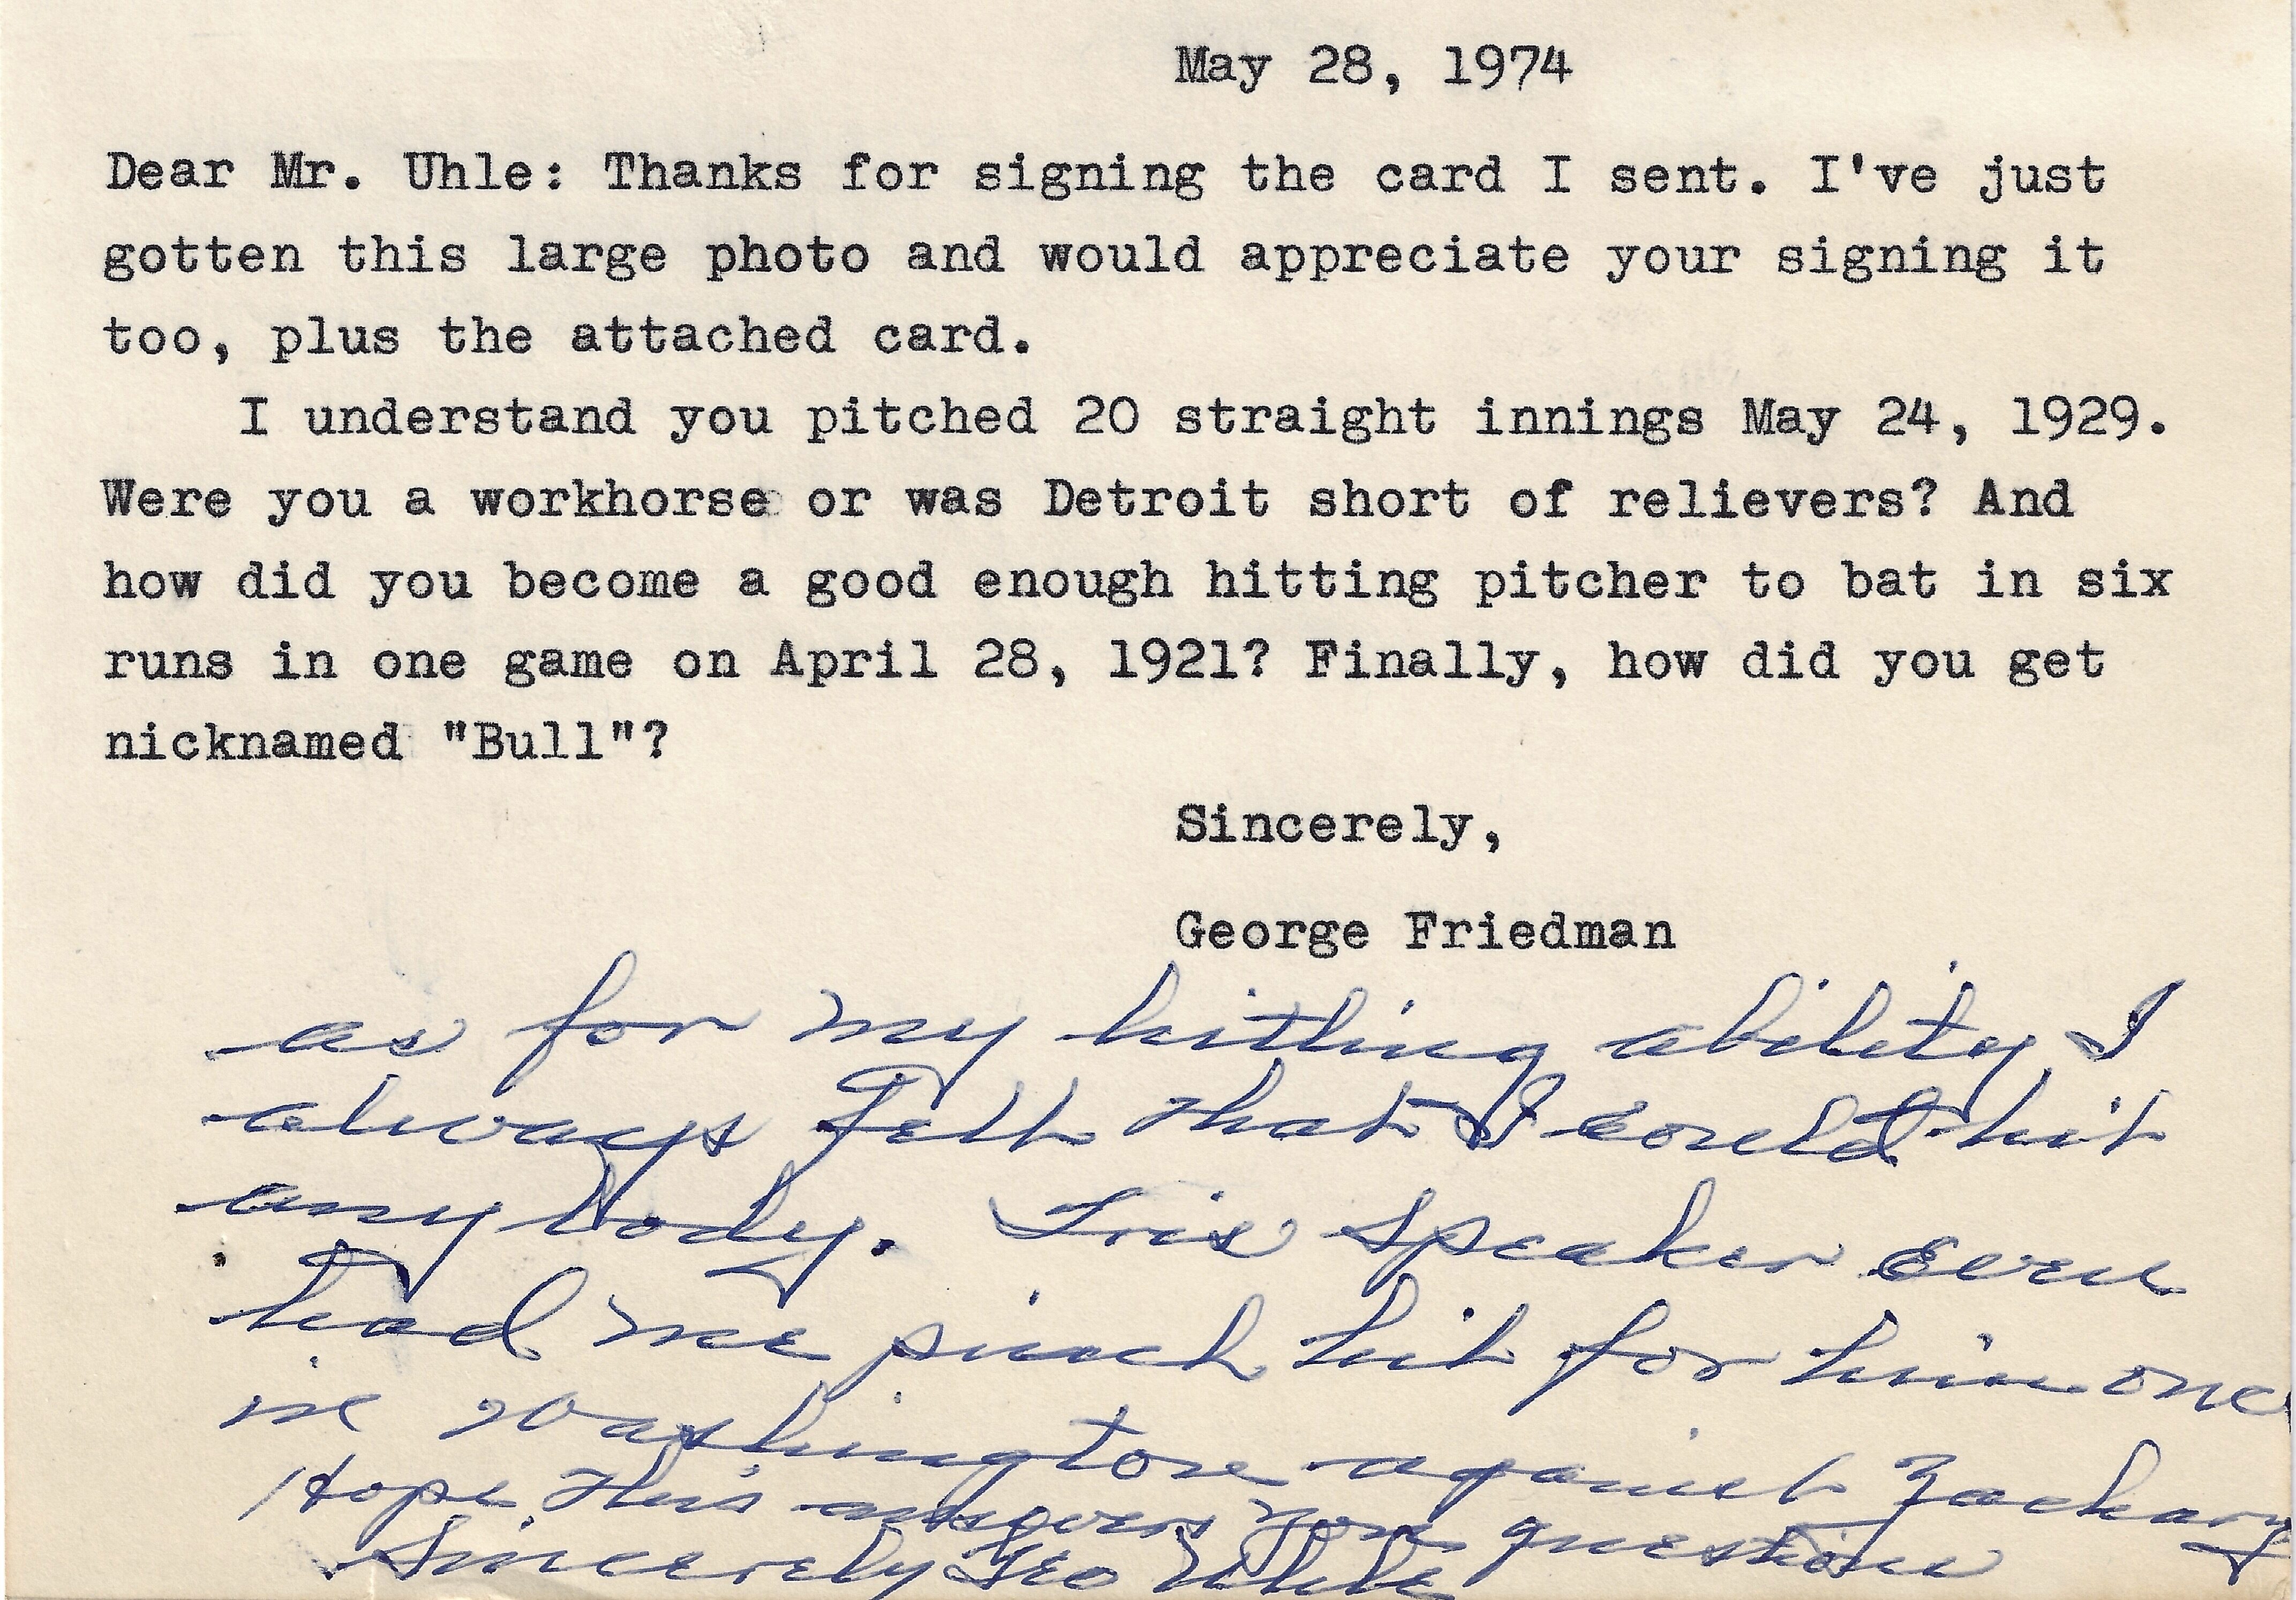 May 28, 1974
Dear Mr. Uhle: Thanks for signing the card I sent. I've just
gotten this large photo and would appreciate your signing it
too, plus the attached card.
I understand you pitched 20 straight innings May 24, 1929.
Were you a workhorse or was Detroit short of relievers? And
how did you become a good enough hitting pitcher to bat in six
runs in one game on April 28, 1921? Finally, how did you get
nicknamed "Bull"?
Sincerely,
George Friedman
as for my hitting ability I
always felt that I could hit
any body. Tris Speaker even
had me pinch hit for him once
in Washington against Zachary
Hope this answers your questions
Sincerely Geo Uhle